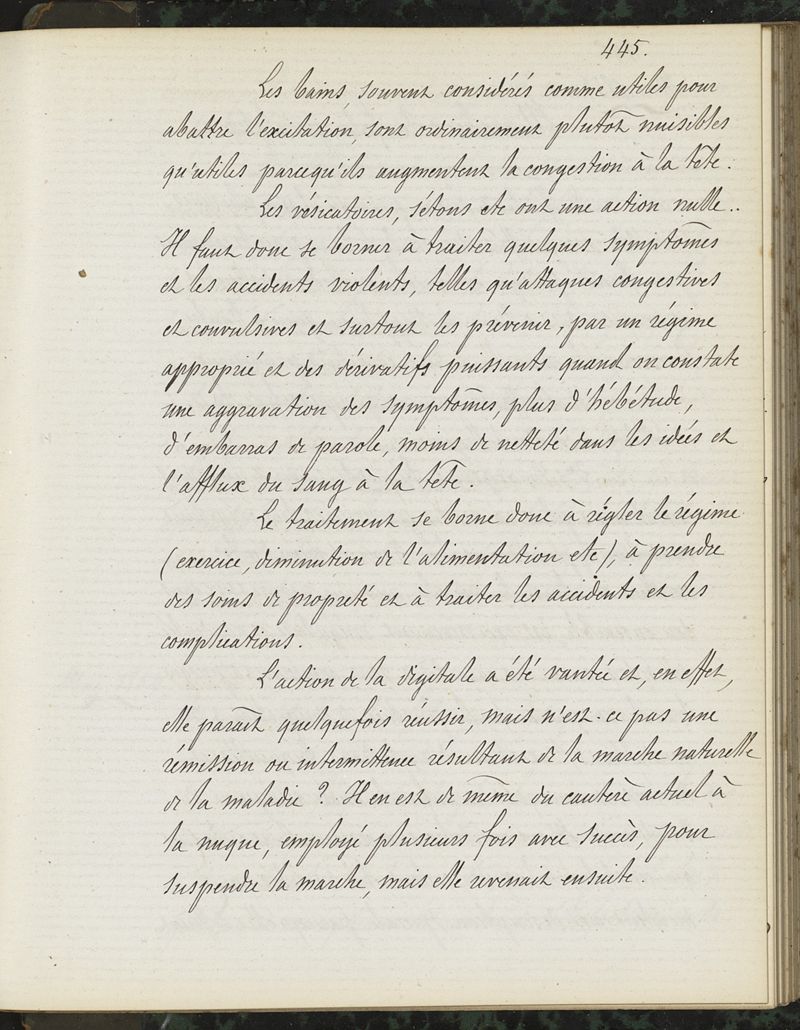 445.
Les bains, souvent considérés comme utiles pour
abattre l'excitation, sont ordinairement plutôt nuisibles
qu'utiles parcequ'ils augmentent la congestion à la tête.
Les vésicatoires, sétons etc ont une action nulle..
Il faut donc se borner à traiter quelques symptômes
et les accidents violents, telles qu'attaques congestives
et convulsives et surtout les prévenir, par un régime
approprié et des dérivatifs puissants quand on constate
une aggravation des symptômes, plus d'hébétude,
d'embarras de parole, moins de netteté dans les idées et
l'afflux du sang à la tête.
Le traitement se borne donc à régler le régime
(exercice, diminution de l'alimentation etc), à prendre
des soins de propreté et à traiter les accidents et les
complications.
L'action de la digitale a été vantée et, en effet,
elle paraît quelquefois réussir, mais n'est-ce pas une
rémission ou intermittence résultant de la marche naturelle
de la maladie ? Il en est de même du cautère actuel à
la nuque, employé plusieurs fois avec succès, pour
suspendre la marche, mais elle revenait ensuite.